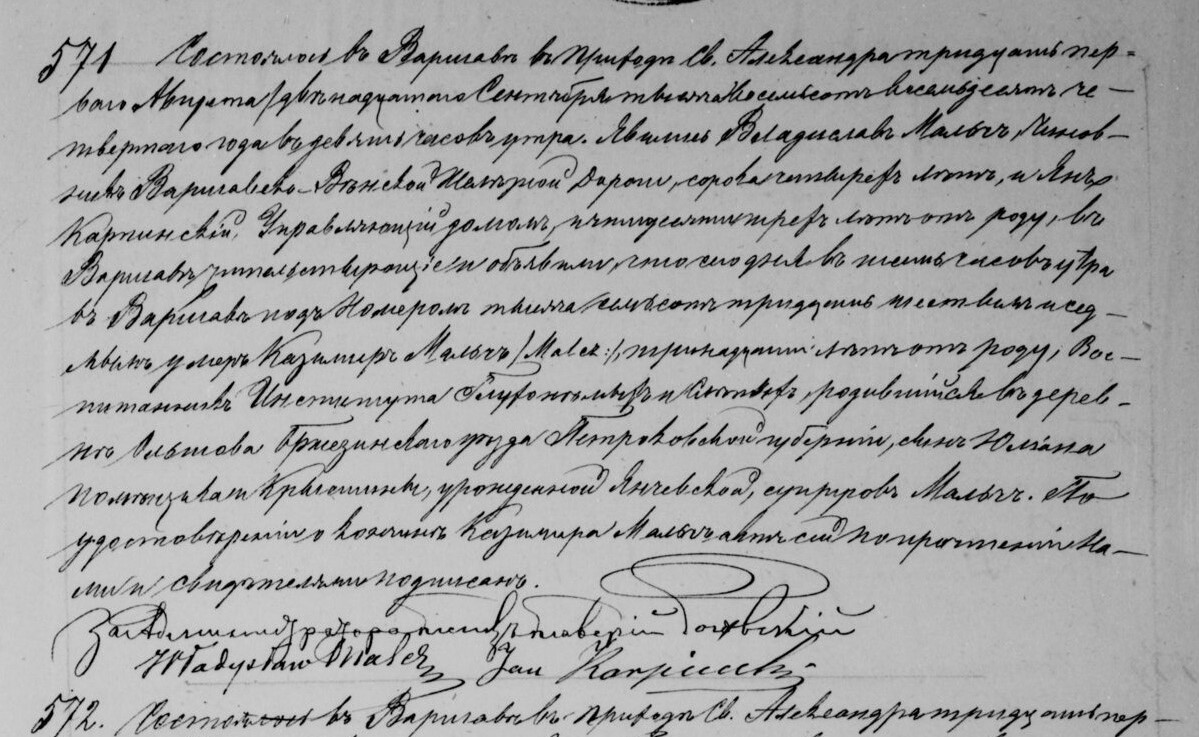 571 Состоялось въ Варшавѣ въ приходѣ Св. Александра тридцать пер-
ваго Августа /двѣнадцатаго Сентября тысяча восемьсотъ восемьдесятъ че-
твертаго года въ девять часовъ утра. Явились Владиславъ Мальчъ, Чинов-
никъ Варшавско-Вѣнской Желѣзной Дороги, сорока четырехъ лѣтъ, и Янъ
Карпинскій, Управляющій домомъ, пятидесяти трехъ лѣтъ отъ роду, въ
Варшавѣ жительствующіе и объявили, что сего дня въ часовъ утра
въ Варшавѣ подъ Номеромъ тысяча семьсотъ тридцать шестымъ и сед-
мымъ умеръ Казимиръ Мальчъ /Malcz:/, тринадцати лѣтъ отъ роду, Вос-
питанникъ Института Глухонѣмыхъ и Слѣпыхъ, родившійся въ дерев-
нѣ Ольшова Брезинскаго уѣзда Петроковской губерніи, сынъ Юліана
и Кристины, урожденной Янчевской, супруговъ Мальчъ. По
удостовѣреніи о кончинѣ Казимира Мальчъ актъ сей по прочтеніи На-
ми и свидѣтелями подписанъ.
Władysław Malcz Jan Karpiński
572. Состоялось въ Варшавѣ въ приходѣ Св. Александра тридцать пер-